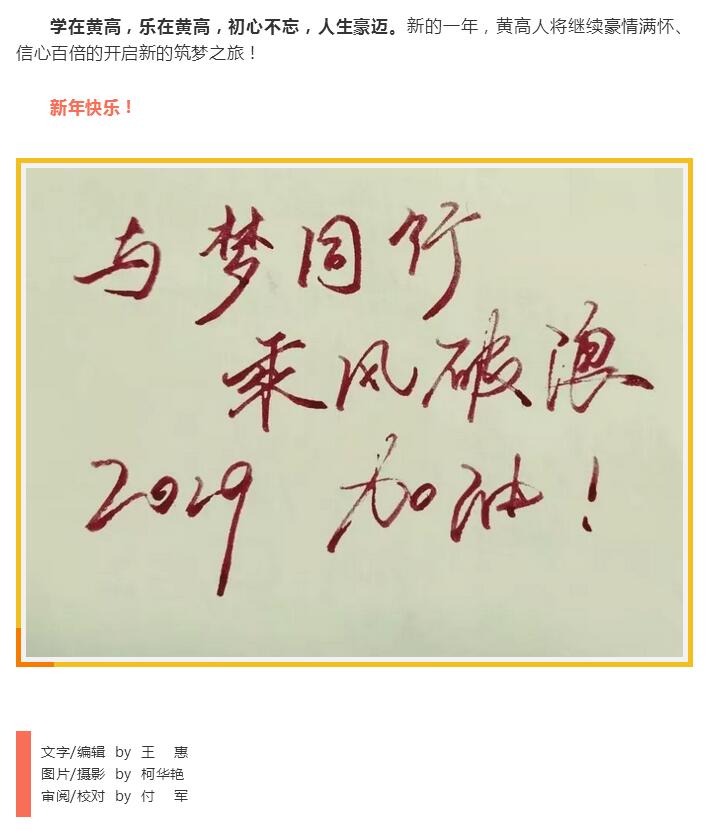 学在黄高，乐在黄高，初心不忘，人生豪迈。新的一年，黄高人将继续豪情满怀、
信心百倍的开启新的筑梦之旅！
新年快乐！
与梦同行
乘风破浪
2019 加油！
文字/编辑 by 王 惠
图片/摄影 by 柯华艳
审阅/校对 by 付 军